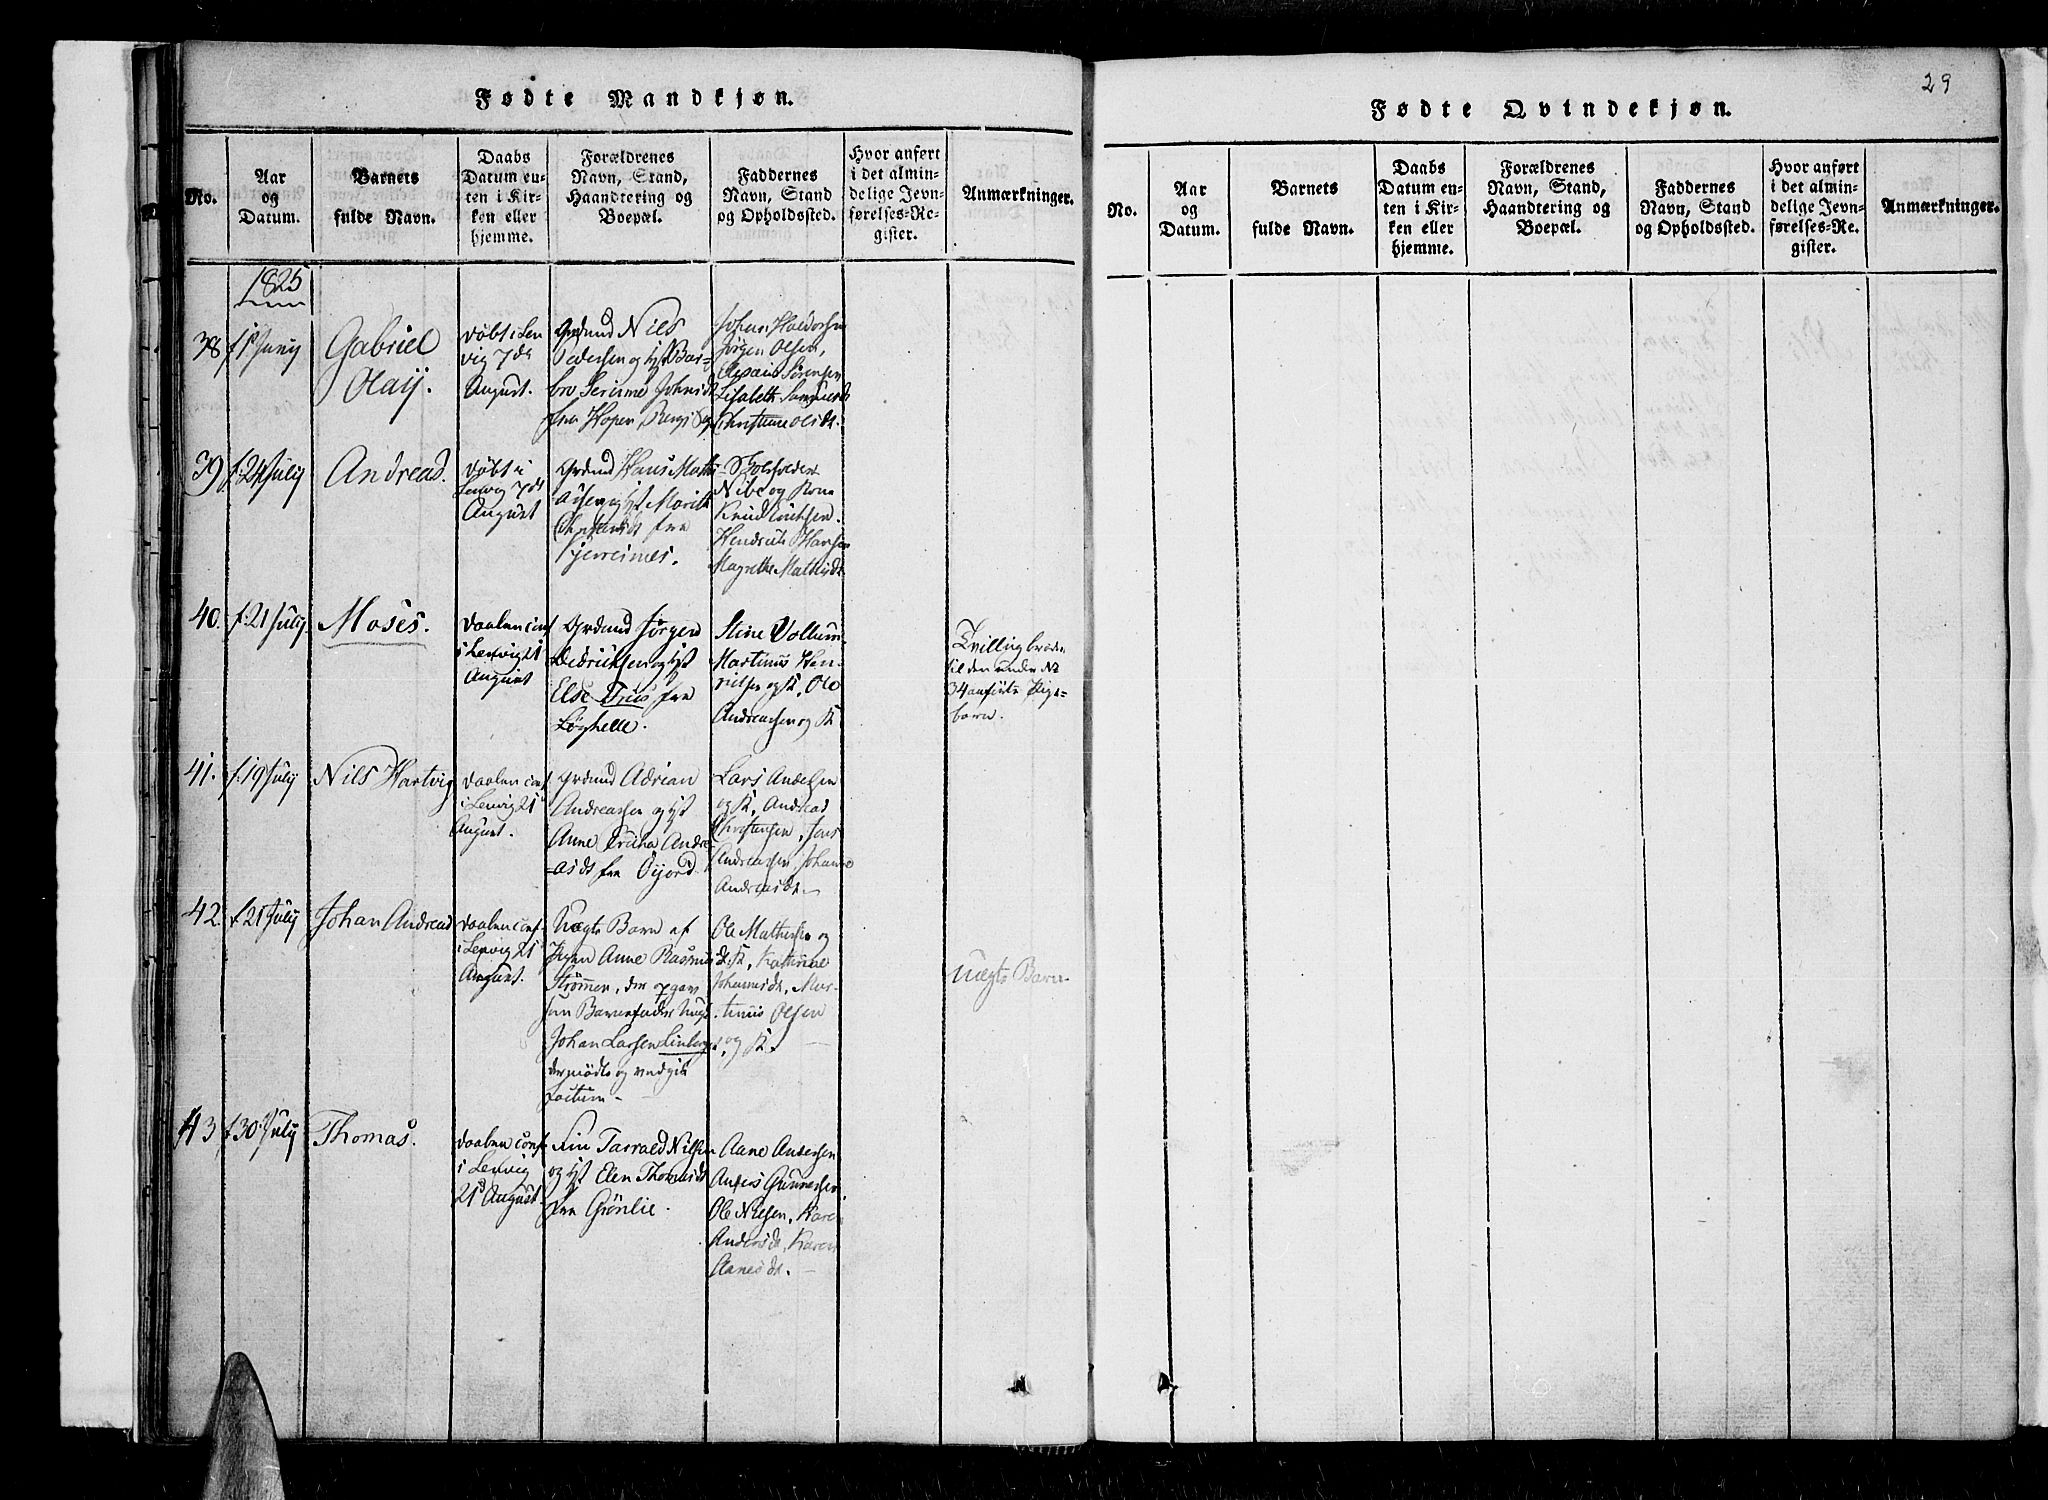 Fødte Mandkjøn.
No.
Aar
og
Datum.
Barnets
fulde Navn.
Daabs
Datum en-
ten i Kir-
ken eller
hjemme.
Forældrenes
Navn, Stand,
Haandtering og
Boepæl.
Faddernes
Navn, Stand
og Opholdssted.
Hvor anført
i det almin-
delige Jevn-
førelses-Re-
gister.
Anmærkninger.
1825
38
f 1ste Juny
Gabriel
Olaij.
Døbt i Len
vig 7de
August.
Grdmd Nils
Pedersen og Hst Bar-
bro Serine Johnsdt
fra Hopen
Johan Haldorsen
Jørgen Olsen,
Sørensen
Lisabeth
Christine Olsdt.
39
f. 24 July
Andreas.
Døbt i
Lenvig 7de
August
Grdmd Hans Mathi
asen og Hst Marith
fra
Gjerresnes.
Skoleholder
Nibe og Kone
Knud Erichsen.
Hendrich Hansen
Magrethe Mathisdt
40.
f. 21 July
Moses.
Daaben conf
i Lenvig 21
August
Grdmd Jørgen
Didrichsen og Hst
Else fra
Løghelle.
Stine Vollum
Martinus Hen-
richsen og K, Ole
Andreassen og K
Tvillingbroder
til den under No
34 anførte Pige-
barn.
41.
f. 19 July
Nils Hartvig
Daaben conf
i Lenvig 21
August.
Grdmd Adrian
Andreassen og Hst
Anne Andre
-asdt fra Øijord
Lars Andersen
og K, Andreas
Christensen, Jens
Andreasen, Johanne
Andreasdt.
42.
f. 21 July
Johan Andreas
Daaben conf.
i Lenvig 21
August.
Uægte Barn af
Pigen Anne Rasmus
Strømmen, der opgav
sin Barnefader Ungk.
Johan Larsen Linberget,
der mødte og vedgik
factum
Ole Mathesen og
K, Kathrine
Johannesdt, Mar-
tinus Olsen
og K.
Uægte Barn
43
f 30 July
Thomas.
Daaben conf
i Lenvig
21 August
Inn Tarrald Nilsen
og Hst Elen Thomasdt
fra Grönlie.
Aane Andersen
Anfin Gunnersen
Ole Nielsen, Karen
Andersdt, Karen
Aanesdt.
29
Fødte Qvindekjøn.
No.
Aar
og
Datum.
Barnets
fulde Navn.
Daabs
Datum en-
ten i Kir-
ken eller
hjemme.
Forældrenes
Navn, Stand,
Haandtering og
Boepæl.
Faddernes
Navn, Stand
og Opholdssted.
Hvor anført
i det almin-
delige Jevn-
førelses-Re-
gister.
Anmærkninger.